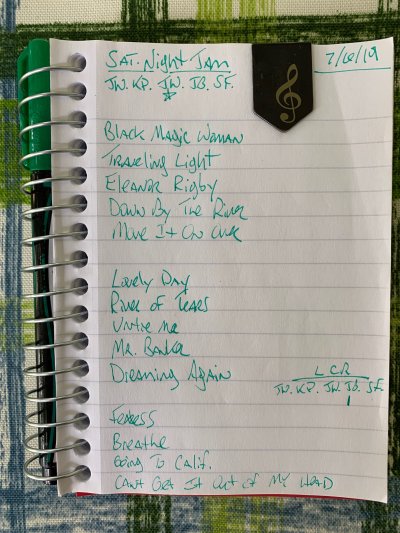 SAT. Night Jam 7/6/19
JN. KP. JW. JB. SF.
Black Magic Woman
Traveling Light
Eleanor Rigby
Down By The River
Move It On Over
Lovely Day
River of Tears
Untie Me
Mr. Banker
Dreaming Again
L C R
JN. KP. JW. JB. SF.
1
Fearless
Breathe
Going To Calif.
Can't Get It Out of My Head